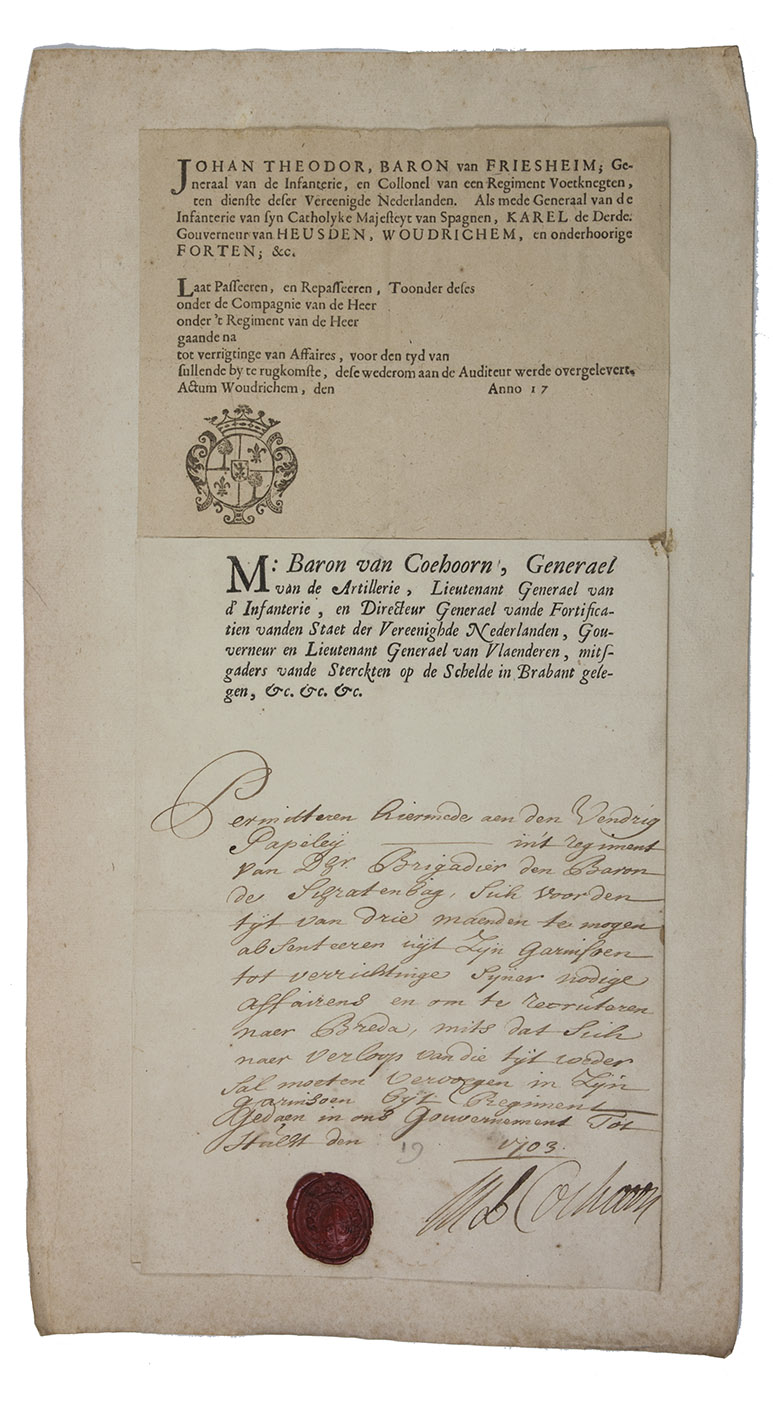 JOHAN THEODOR, BARON van FRIESHEIM; Ge-
neraal van de Infanterie, en Collonel van een Regiment Voetknegten,
ten dienste deser Vereenigde Nederlanden. Als mede Generaal van de
Infanterie van syn Catholyke Majesteyt van Spagnen, KAREL de Derde.
Gouverneur van HEUSDEN, WOUDRICHEM, en onderhoorige
FORTEN; &c.
Laat Passeeren, en Repasseeren, Toonder deses
onder de Compagnie van de Heer
onder 't Regiment van de Heer
gaande na
tot verrigtinge van Affaires, voor den tyd van
sullende by te rugkomste, dese wederom aan de Auditeur werde overgelevert.
Actum Woudrichem, den Anno 17
M: Baron van Coehoorn, Generael
van de Artillerie, Lieutenant Generael van
d' Infanterie, en Directeur Generael vande Fortifica-
tien vanden Staet der Vereenighde Nederlanden, Gou-
verneur en Lieutenant Generael van Vlaenderen, mits-
gaders vande Sterckten op de Schelde in Brabant gele-
gen, &c. &c. &c.
Permitteren hiermede aen den Vendrig
Papeleij int regiment
van Brigadier den Baron
de sich voor den
tijt van drie maenden te mogen
absenteeren uijt Zijn garnisoen
tot verrichtinge Sijner nodige
affairens en om te recruteren
naer Breda, mits dat sich
naer verloop van die tijt weder
sal moeten vervoegen in Zijn
garnisoen bijt Regiment
Gedaen in ons Gouvernement Tot
Hulst den 19 1703.
Coehoorn